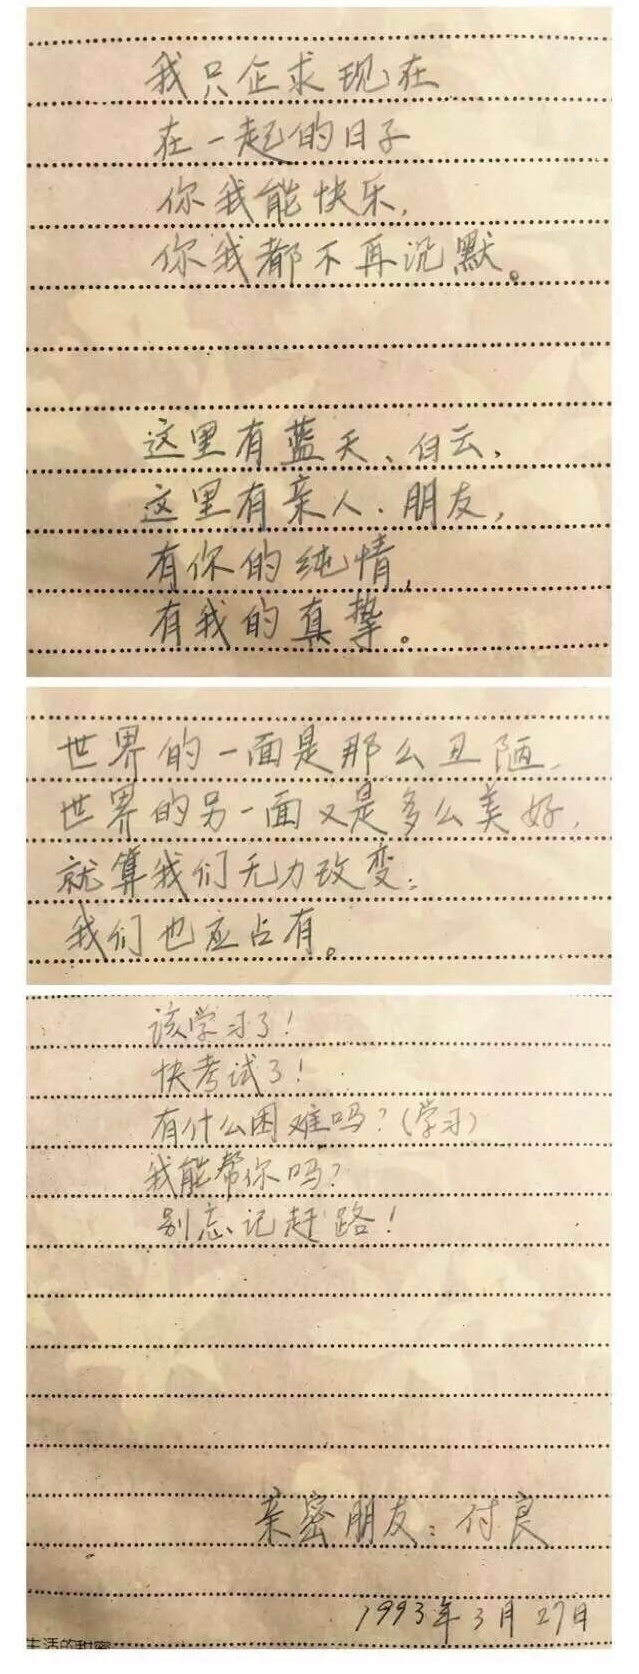 我只企求现在
在一起的日子
你我能快乐,
你我都不再沉默。
这里有蓝天、白云,
这里有亲人、朋友,
有你的纯情,
有我的真挚。
世界的一面是那么丑陋,
世界的另一面又是多么美好,
就算我们无力改变;
我们也应占有。
该学习了!
快考试了!
有什么困难吗?(学习)
我能帮你吗?
别忘记赶路!
亲密朋友:付良
1993年3月27日
生活的甜蜜